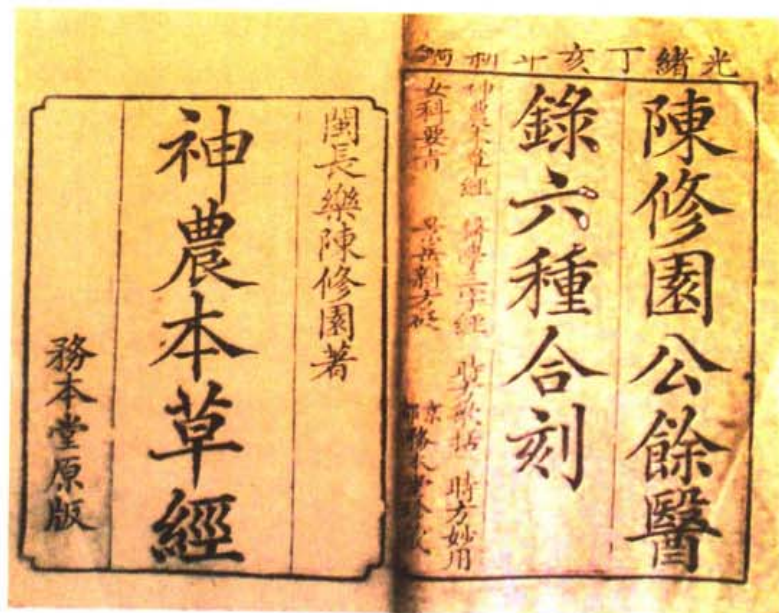 光緒丁亥
陳修園公餘醫
錄六種合刻
神農本草經 醫學三字經 時方歌括 時方妙用
女科要旨 景岳新方砭
閩長樂陳修園著
神農本草經
務本堂原版